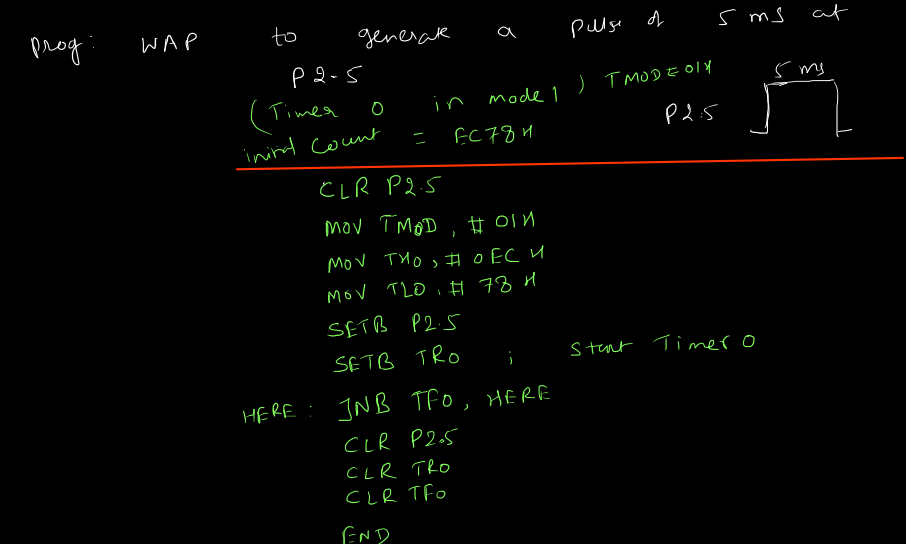 prog: WAP to generate a pulse of 5 ms at
P2-5
(Timer 0 in mode 1) TMOD=01H
5 ms
P2.5
initial count = EC78H
CLR P2.5
MOV TMOD, #01H
MOV TH0, #0ECH
MOV TL0, #78H
SETB P2.5
SETB TR0 ; Start Timer 0
HERE: JNB TF0, HERE
CLR P2.5
CLR TR0
CLR TF0
END